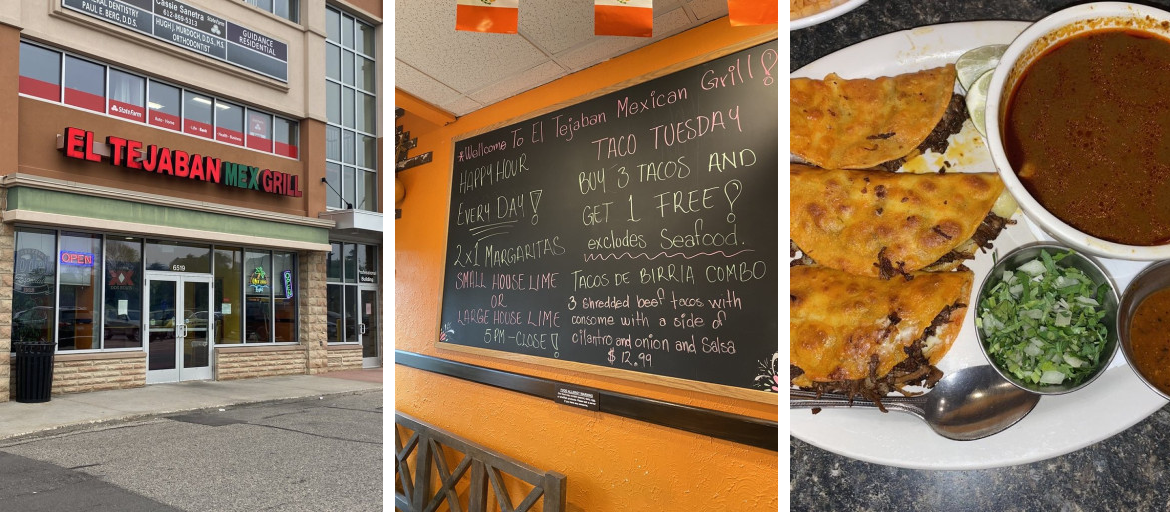 Cassie Sanetra
612-869-5313
DENTISTRY
PAUL E. BERG, D.D.S.
HUGH J. MURDOCH, D.D.S., M.S.
ORTHODONTIST
GUIDANCE
RESIDENTIAL
StateFarm
EL TEJABAN MEX GRILL
OPEN
6519
Building
Welcome To El Tejaban Mexican Grill!
HAPPY HOUR
EVERY DAY!
2x1 MARGARITAS
SMALL HOUSE LIME
OR
LARGE HOUSE LIME
5PM-CLOSE!
TACO TUESDAY
BUY 3 TACOS AND
GET 1 FREE!
excludes Seafood.
TACOS DE BIRRIA COMBO
3 shredded beef tacos with
consome with a side of
cilantro and onion and Salsa
$ 12.99